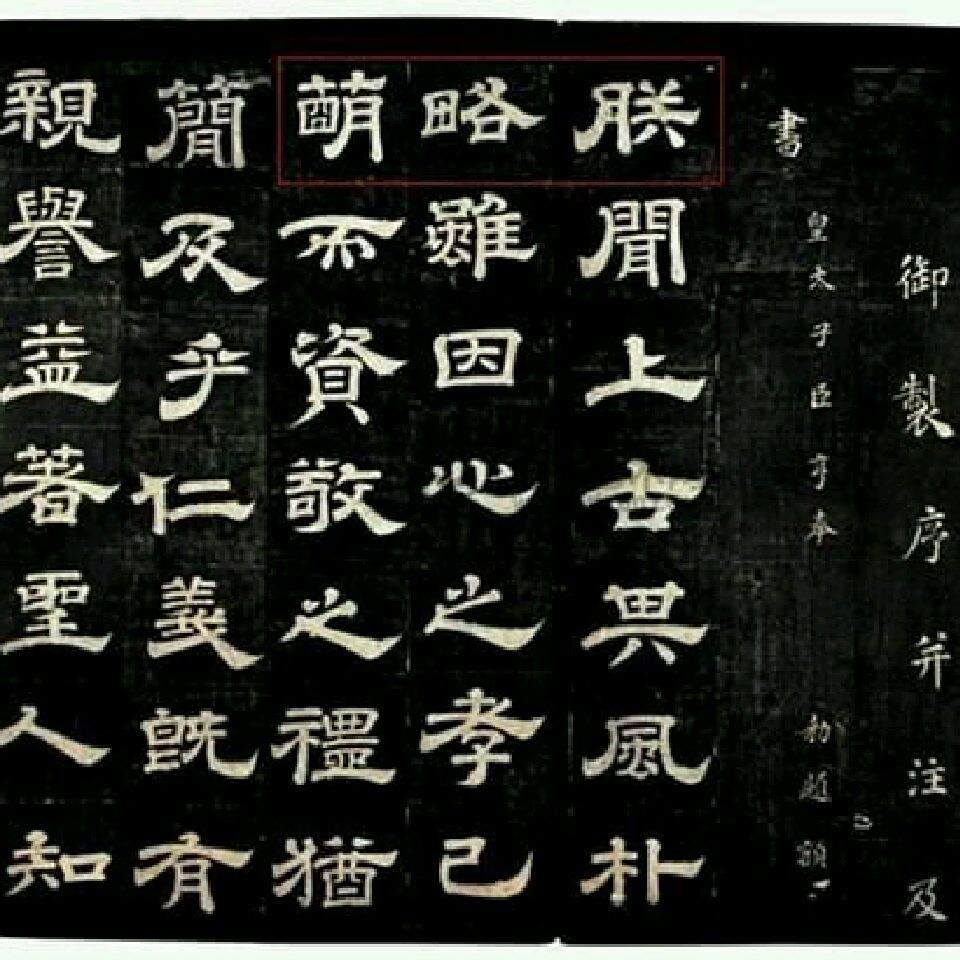 御製序并注及
書
皇太子臣亨奉 勅題額
朕聞上古其風朴
略雖因心之孝已
萌而資敬之禮猶
簡及乎仁義既有
親譽益著聖人知